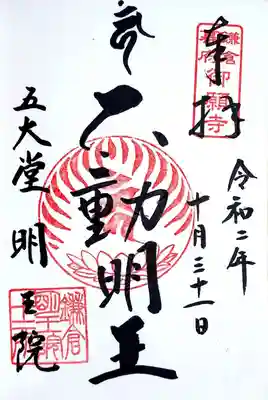 奉拝
鎌倉
幕府
御願寺
令和二年
十月三十一日
不動明王
五大堂 明王院
鎌倉